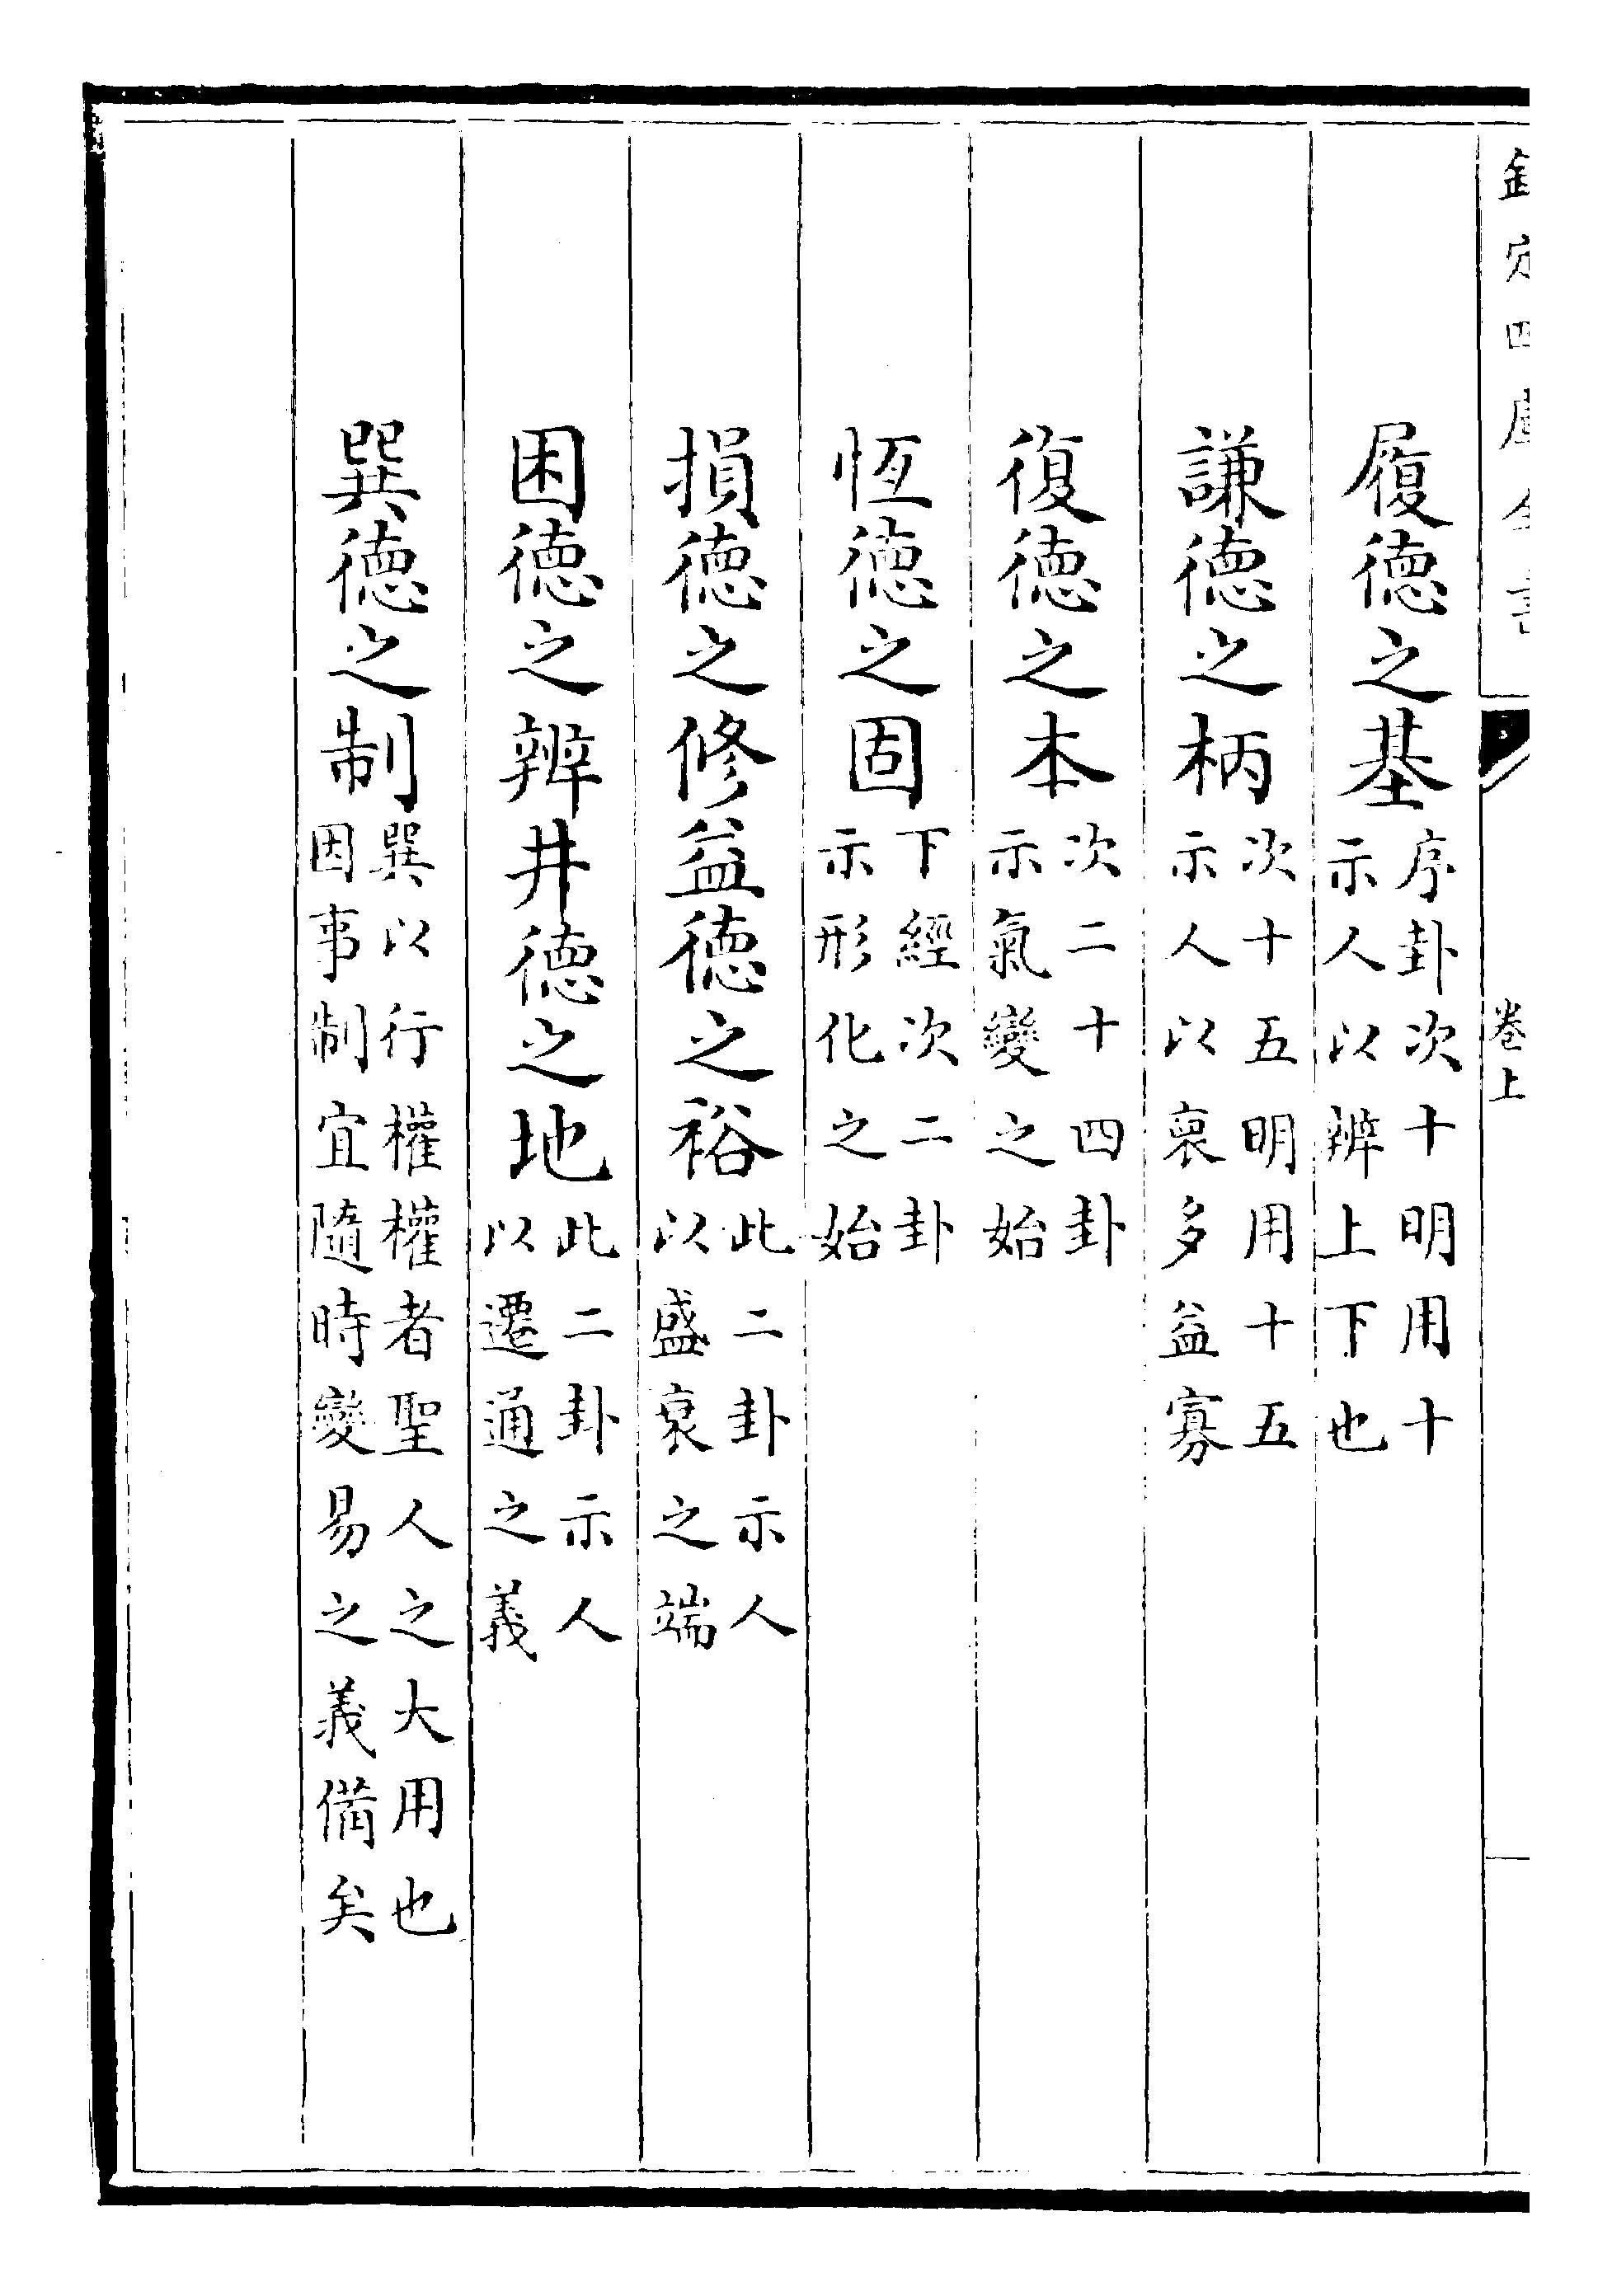 欽定四庫全書
卷上
履德之基序卦次十明用十示人以辨上下也
謙德之柄次十五明用十五示人以裒多益寡
復德之本次二十四卦示氣變之始
恆德之固下經次二卦示形化之始
損德之修益德之裕此二卦示人以盛衰之端
困德之辨井德之地此二卦示人以遷通之義
巽德之制巽以行權權者聖人之大用也因事制宜隨時變易之義備矣